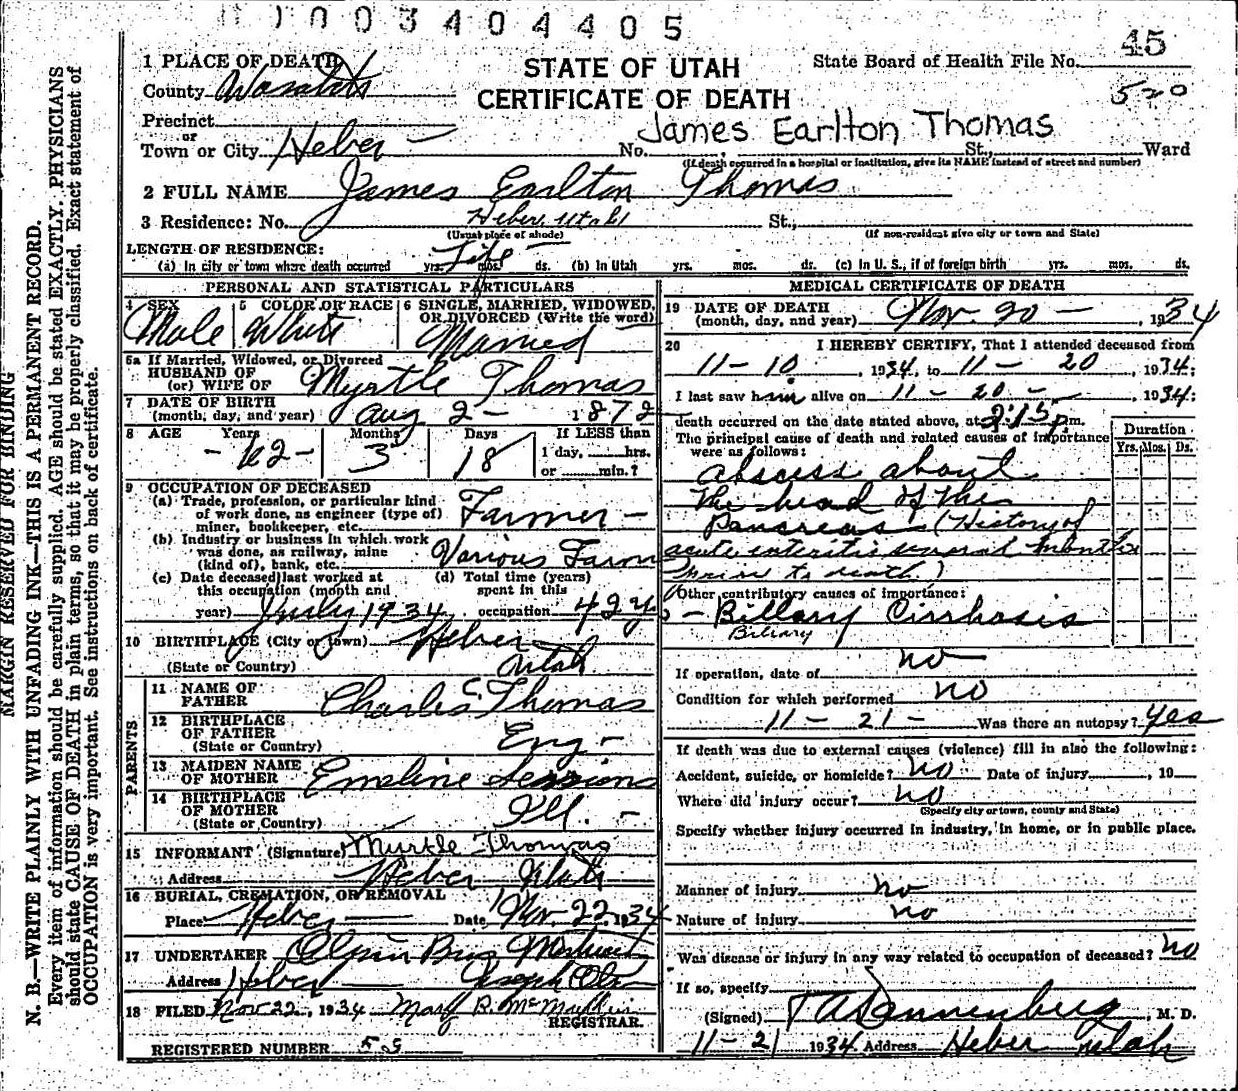 1003404405
45
1 PLACE OF DEATH
STATE OF UTAH
State Board of Health File No.
County Wasatch
CERTIFICATE OF DEATH
520
Precinct
or
James Earlton Thomas
Town or City Heber No. St., Ward
(If death occurred in a hospital or institution, give its NAME instead of street and number)
2 FULL NAME James Earlton Thomas
3 Residence: No. Heber, Utah St.,
(Usual place of abode) (If non-resident give city or town and State)
LENGTH OF RESIDENCE:
(a) In city or town where death occurred yrs. Life mos. ds. (b) In Utah yrs. mos. ds. (c) In U. S., if of foreign birth yrs. mos. ds.
PERSONAL AND STATISTICAL PARTICULARS
4 SEX 5 COLOR OR RACE 6 SINGLE, MARRIED, WIDOWED,
OR DIVORCED (Write the word)
Male White Married
5a If Married, Widowed, or Divorced
HUSBAND OF
(or) WIFE OF Myrtle Thomas
7 DATE OF BIRTH
(month, day, and year) Aug 2 - 1872
8 AGE Years Months Days If LESS than
- 62 - 3 18 1 day, hrs.
or min.?
9 OCCUPATION OF DECEASED
(a) Trade, profession, or particular kind
of work done, as engineer (type of)
miner, bookkeeper, etc. Farmer -
(b) Industry or business in which work
was done, as railway, mine
(kind of), bank, etc. Various Farm
(c) Date deceased last worked at
this occupation (month and
year) July 1934
(d) Total time (years)
spent in this
occupation 42 y
10 BIRTHPLACE (City or town) Heber
(State or Country) Utah
PARENTS
11 NAME OF
FATHER Charles C. Thomas
12 BIRTHPLACE
OF FATHER
(State or Country) Eng -
13 MAIDEN NAME
OF MOTHER Emeline Sessions
14 BIRTHPLACE
OF MOTHER
(State or Country) Ill. -
15 INFORMANT (Signature) Myrtle Thomas
Address Heber Utah
16 BURIAL, CREMATION, OR REMOVAL
Place Heber Date Nov. 22, 1934
17 UNDERTAKER Olpin Bros Mortuary
Address Heber Joseph Olpin
18 FILED Nov 22, 1934 Mary R. McMullin
REGISTRAR.
REGISTERED NUMBER 59
MEDICAL CERTIFICATE OF DEATH
19 DATE OF DEATH
(month, day, and year) Nov. 20 -, 1934
20 I HEREBY CERTIFY, That I attended deceased from
11 - 10, 1934, to 11 - 20, 1934;
I last saw him alive on 11 - 20 -, 1934;
death occurred on the date stated above, at 2:15 p.m.
The principal cause of death and related causes of importance
were as follows:
Duration
Yrs. Mos. Ds.
abscess about
the head of the
Pancreas (History of
acute enteritis several months
prior to death.)
Other contributory causes of importance:
- Billary Cirrhosis
Biliary
If operation, date of no
Condition for which performed no
11 - 21 - Was there an autopsy? yes
If death was due to external causes (violence) fill in also the following:
Accident, suicide, or homicide? no Date of injury, 19
Where did injury occur? no
(Specify city or town, county and State)
Specify whether injury occurred in industry, in home, or in public place.
Manner of injury no
Nature of injury no
Was disease or injury in any way related to occupation of deceased? no
If so, specify
(Signed) T A Dannenberg, M. D.
11 - 21 1934 Address Heber Utah
MARGIN RESERVED FOR BINDING
N. B.—WRITE PLAINLY WITH UNFADING INK—THIS IS A PERMANENT RECORD.
Every item of information should be carefully supplied. AGE should be stated EXACTLY. PHYSICIANS
should state CAUSE OF DEATH in plain terms, so that it may be properly classified. Exact statement of
OCCUPATION is very important. See instructions on back of certificate.